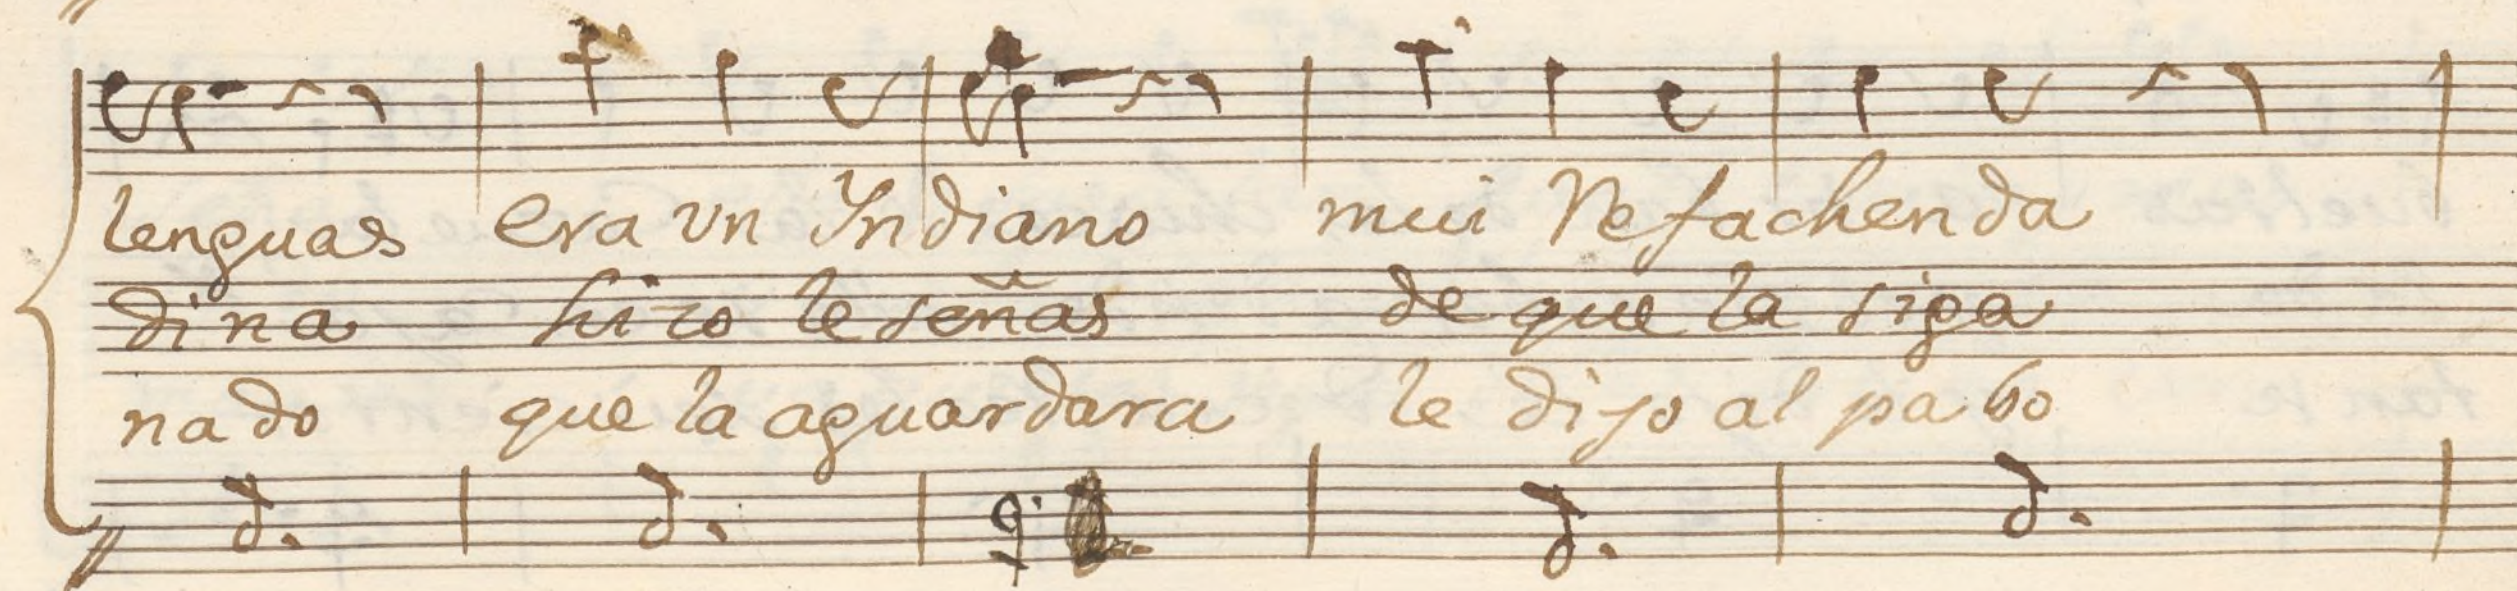 lenguas era vn Yndiano mui Refachenda
dina hizo le señas de que la siga
nado que la aguardara le dijo al pabo